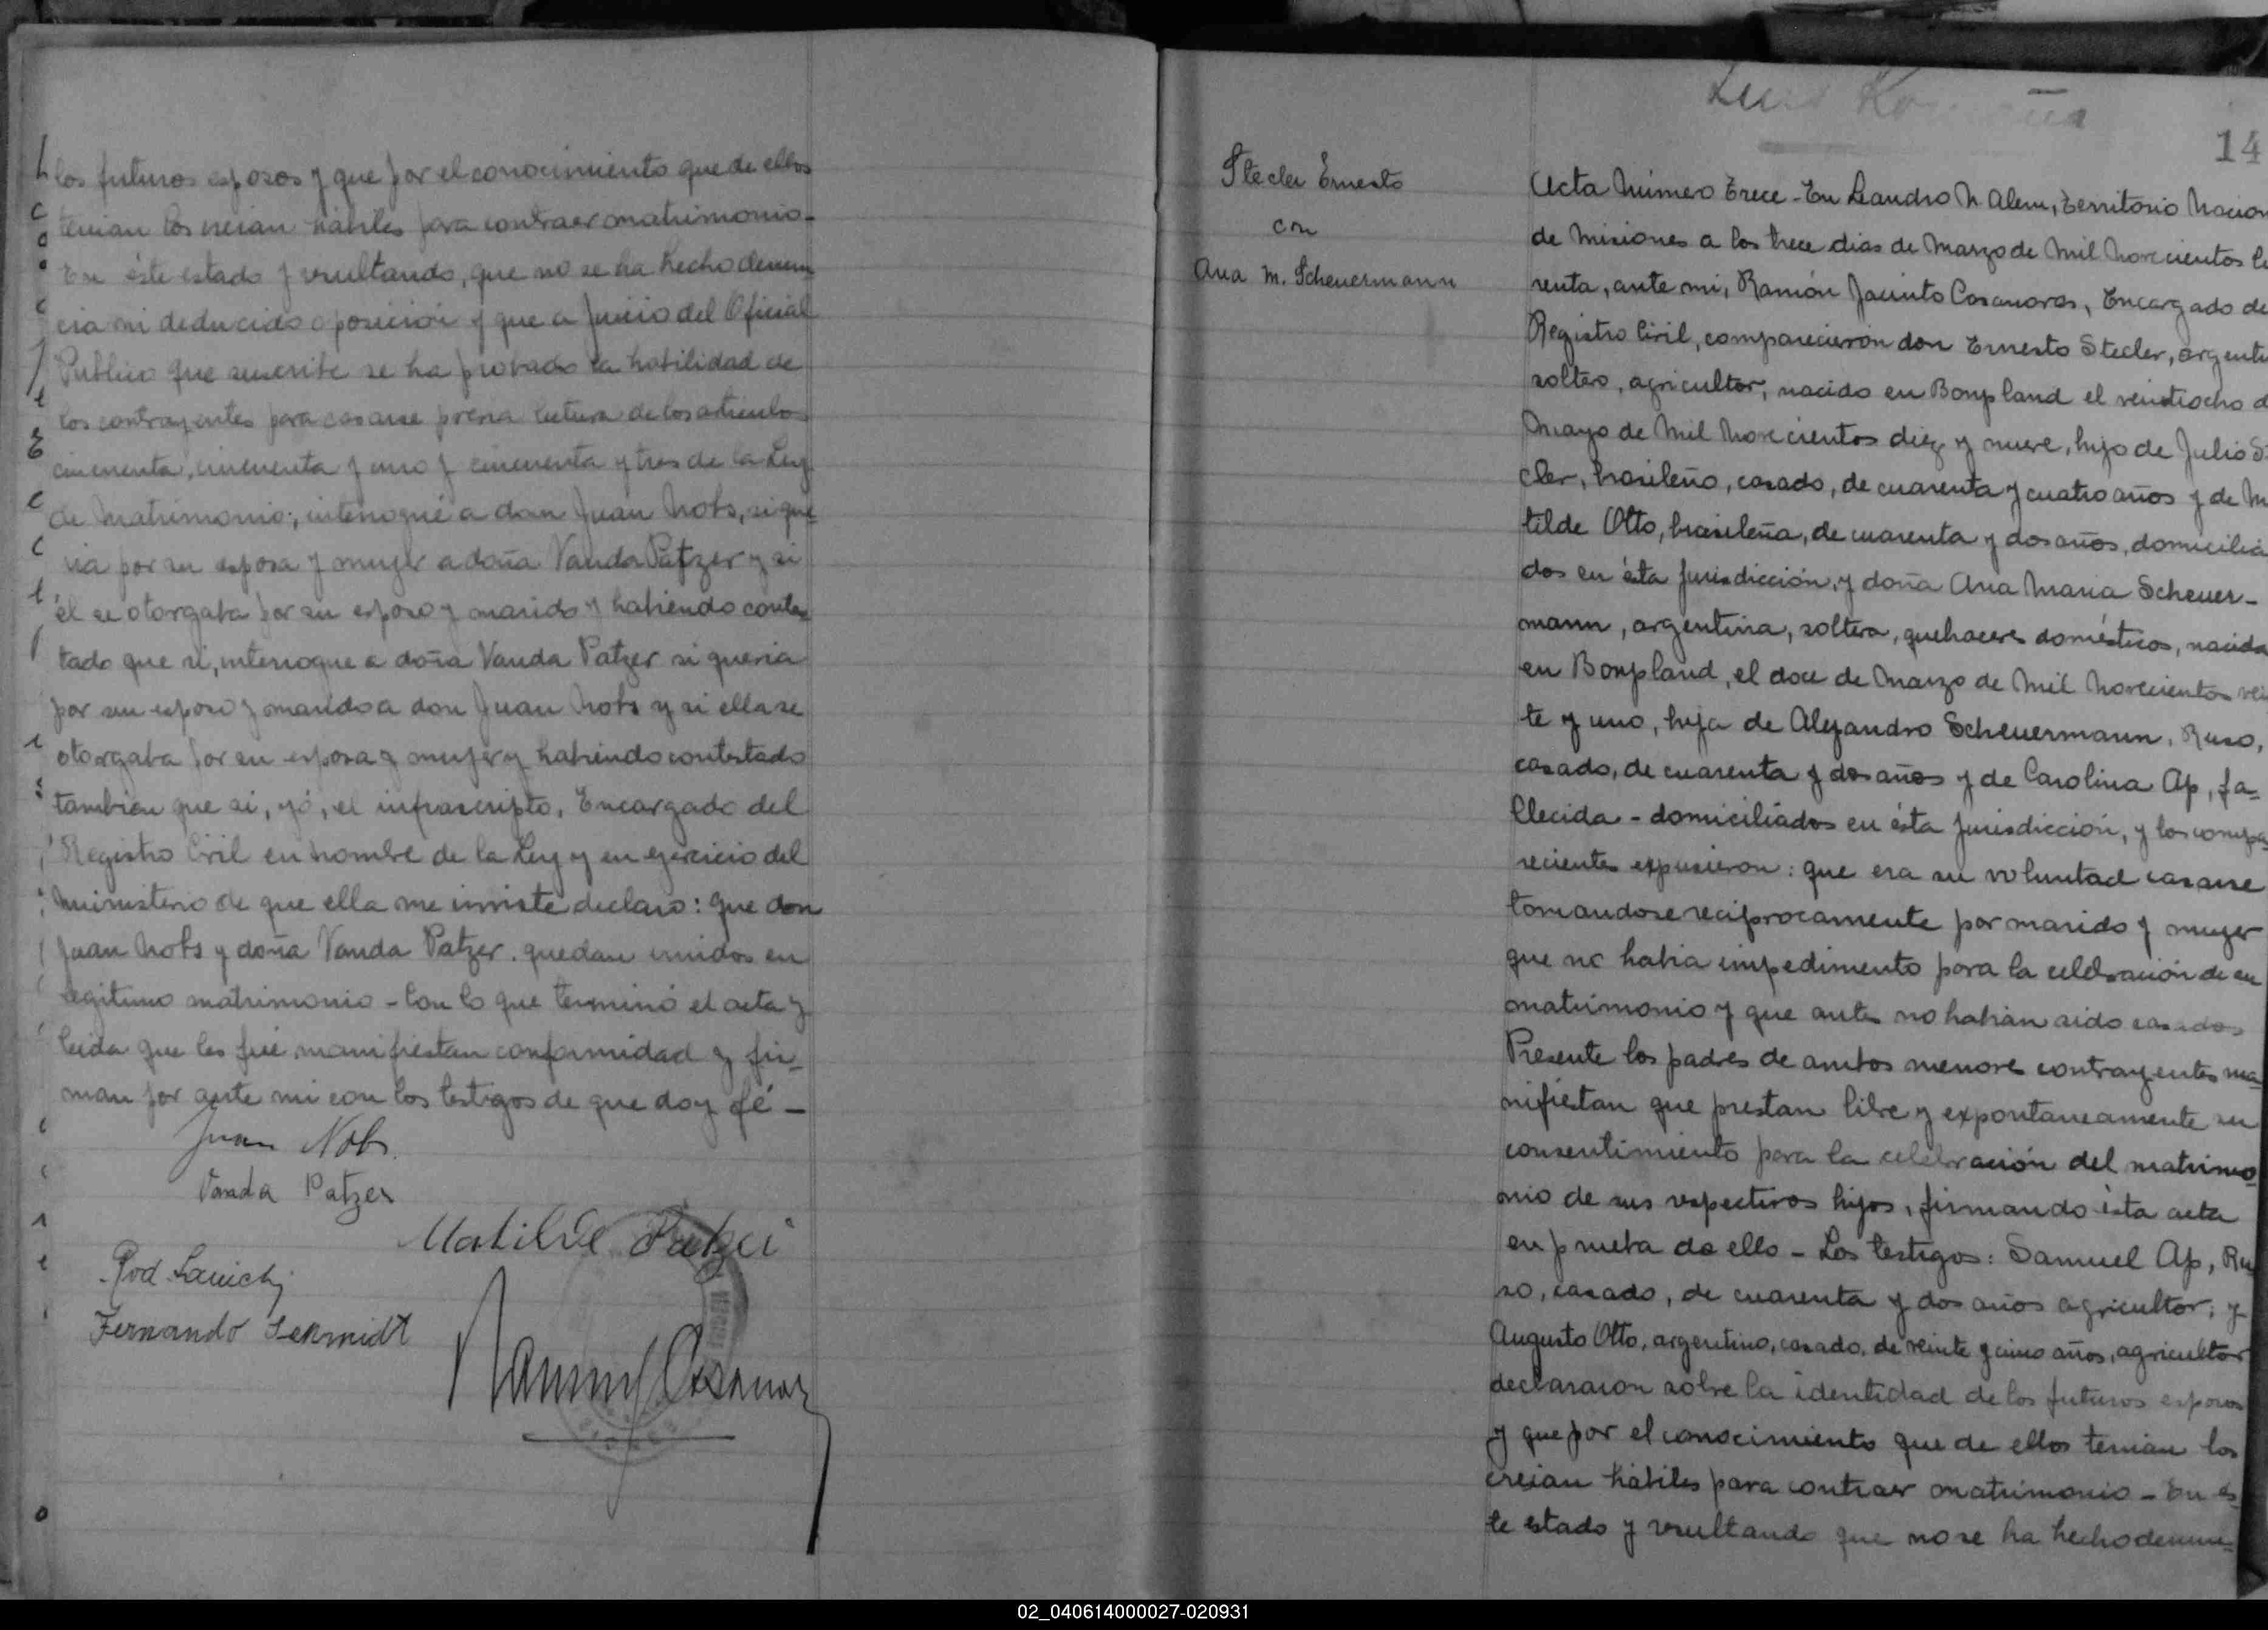 los futuros esposos y que por el conocimiento que de ellos
tenian los creian hábiles para contraer matrimonio-
En éste estado y resultando, que no se ha hecho denun
cia ni deducido oposición y que a juicio del Oficial
Publico que suscribe se ha probado la habilidad de
los contrayentes para casarse previa lectura de los articulos
cincuenta, cincuenta y uno y cincuenta y tres de la Ley
de Matrimonio; interrogué a don Juan Nobs, si que
ria por su esposa y mujer a doña Vanda Patzer y si
él se otorgaba por su esposo y marido y habiendo contes
tado que si, interrogue a doña Vanda Patzer si queria
por su esposo y marido a don Juan Nobs y si ella se
otorgaba por su esposa y mujer y habiendo contestado
tambien que si, yó, el infrascripto, Encargado del
Registro Civil en nombre de la Ley y en ejercicio del
ministerio de que ella me inviste declaro: que don
Juan Nobs y doña Vanda Patzer. quedan unidos en
legitimo matrimonio - Con lo que terminó el acta y
leida que les fué manifiestan conformidad y fir-
man por ante mi con los testigos de que doy fé -
Juan Nobs.
Vanda Patzer
Matilde Patzer
Fernando Schmidt
Luis
14
Stecler Ernesto
con
Ana M. Scheuermann
Acta Número Trece - En Leandro N. Alem, Territorio Nacion
de Misiones a los trece dias de Marzo de Mil Novecientos
renta, ante mi, Ramón Jacinto Casanovas, Encargado de
Registro Civil, comparecieron don Ernesto Stecler, argenti
soltero, agricultor, nacido en Bonpland el veintiocho d
Mayo de Mil Novecientos diez y nueve, hijo de Julio S
cler, brasileño, casado, de cuarenta y cuatro años y de M
tilde Otto, brasileña, de cuarenta y dos años, domicilia
dos en ésta jurisdicción, y doña Ana Maria Scheuer-
mann, argentina, soltera, quehaceres domésticos, nacida
en Bonpland, el doce de Marzo de Mil Novecientos vei
te y uno, hija de Alejandro Scheuermann, Ruso,
casado, de cuarenta y dos años y de Carolina Ap, fa-
llecida - domiciliádos en ésta jurisdicción, y los compa
recientes expusieron: que era su voluntad casarse
tomandose reciprocamente por marido y mujer
que no habia impedimento para la celebración de su
matrimonio y que antes no habian sido casados
Presente los padres de ambos menores contrayentes ma
nifiestan que prestan libre y expontaneamente su
consentimiento para la celebración del matrimo
nio de sus respectivos hijos, firmando ésta acta
en prueba de ello - Los testigos: Samuel Ap, Ru
so, casado, de cuarenta y dos años agricultor; y
Augusto Otto, argentino, casado, de veinte y cinco años, agricultor
declararon sobre la identidad de los futuros esposos
y que por el conocimiento que de ellos tenian los
creian hábiles para contraer matrimonio - En és
te estado y resultando que no se ha hecho denun-
02_040614000027-020931